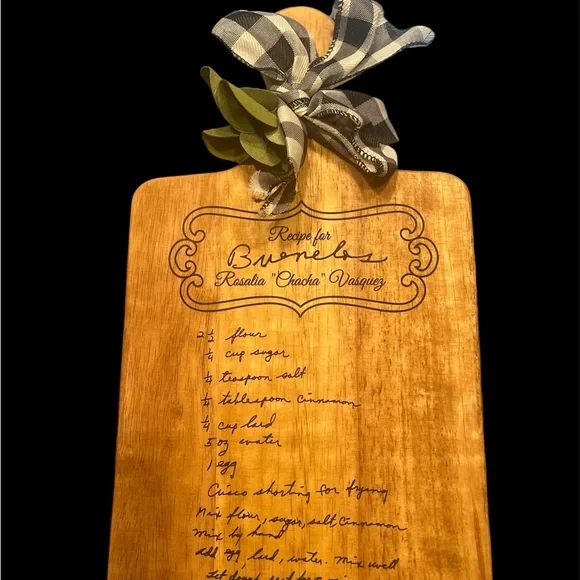 Recipe for
Buenelos
Rosalia "Chacha" Vasquez
2 ½ flour
¼ cup sugar
¼ teaspoon salt
¼ tablespoon Cinnamon
¼ cup lard
5 oz water
1 egg
Cisco shorting for frying
Mix flour, sugar, salt Cinnamon
Mix by hand
add egg, lard, water. Mix well
Let dough